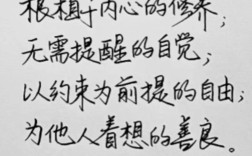 根植于内心的修养;
无需提醒的自觉;
以约束为前提的自由;
为他人着想的善良。